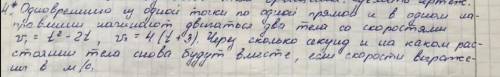 4* Одновременно из одной точки по одной прямой и в одном на-
правлении начинают двигаться два тела со скоростями
v₁ = t² - 2t , v₂ = 4(t + 3). Через сколько секунд и на каком рас-
стоянии тела снова будут вместе, если скорости выраже-
ны в м/с.